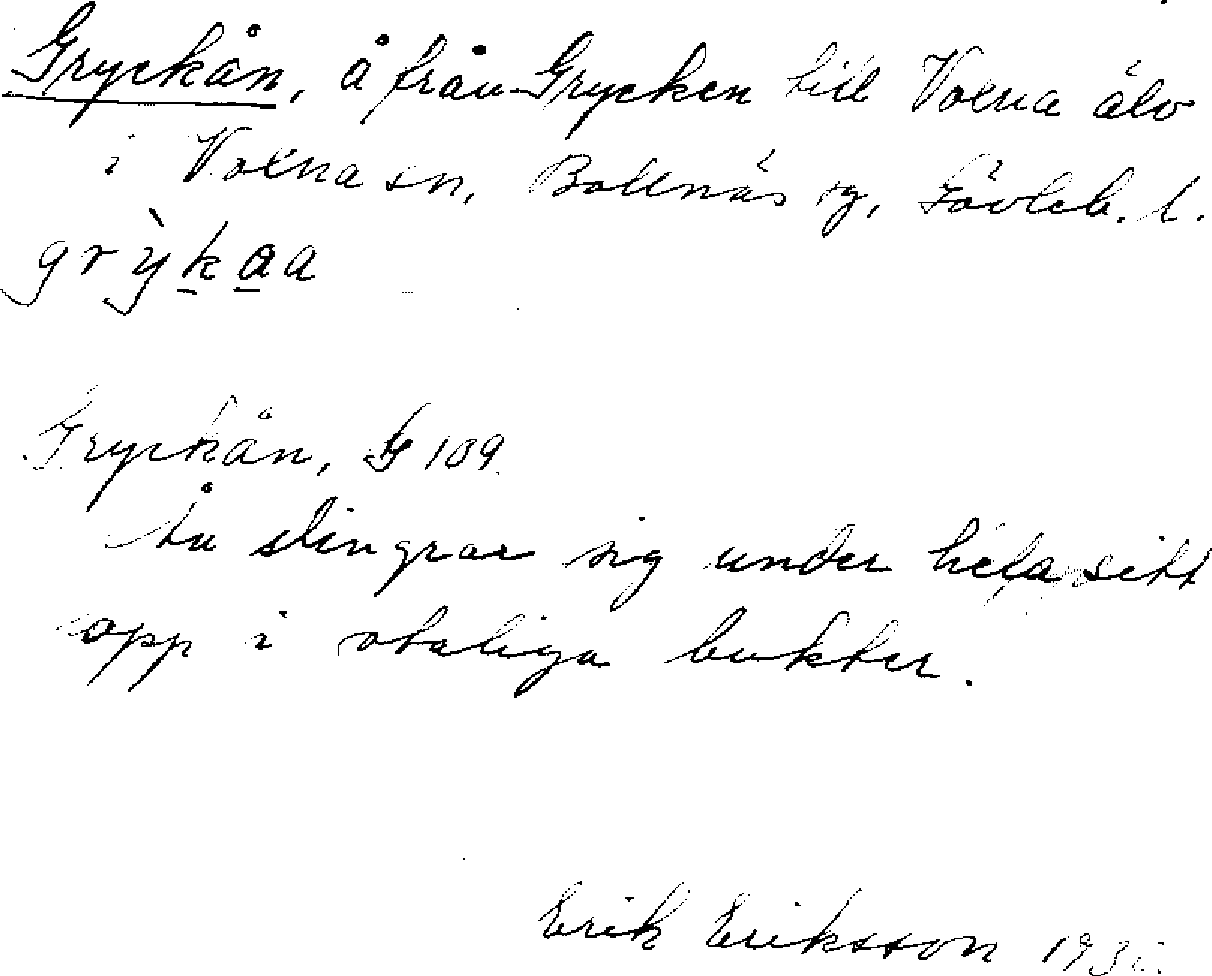 Gryckån, å från Grycken till Voxna älv
i Voxna sn, Bollnäs tg, Gävleb. l.
grỳkaa
Gryckån, G 109.
Ån slingrar sig under hela sitt
lopp i otaliga bukter.
Erik Eriksson